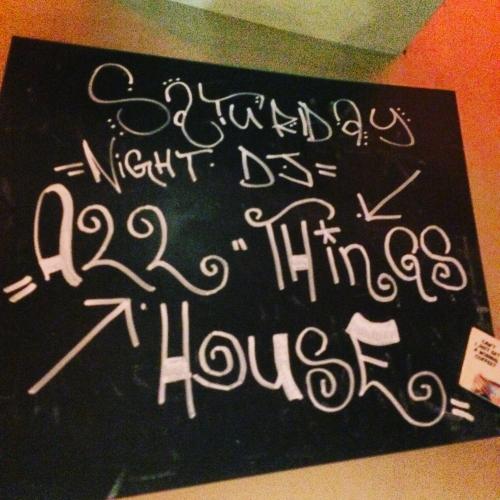 SATURDAY
=NIGHT DJ=
=ALL "THINGS
HOUSE=